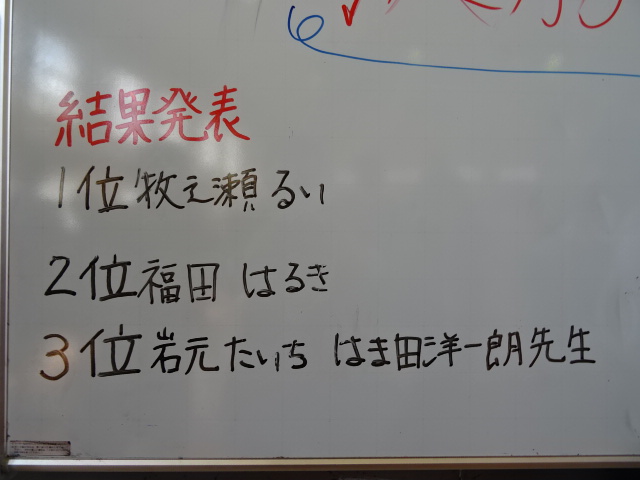 結果発表
1位 牧之瀬 るい
2位 福田 はるき
3位 岩元 たいち はま田洋一朗先生